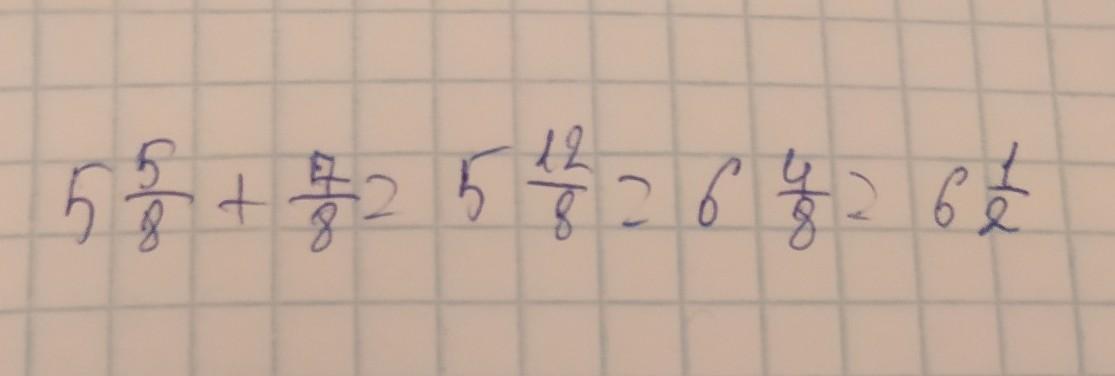 5 5/8 + 7/8 = 5 12/8 = 6 4/8 = 6 1/2